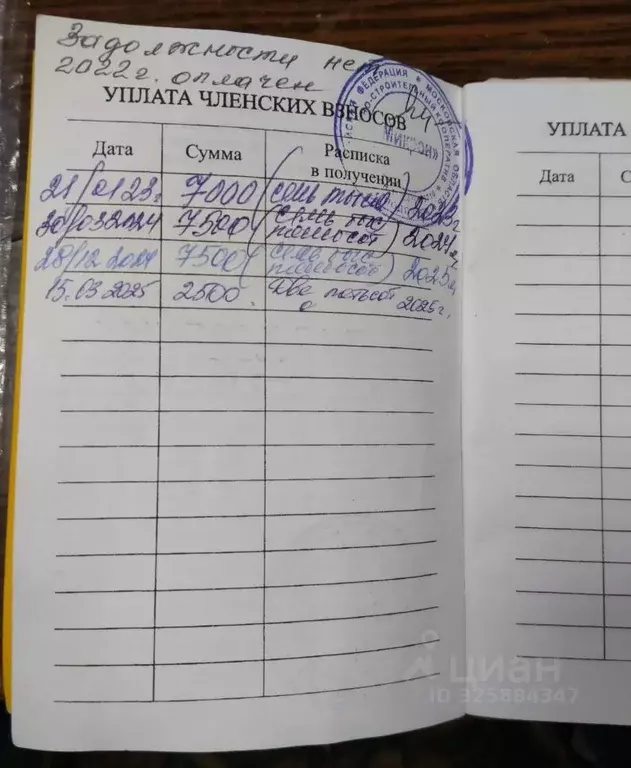 Задолжности нет
2022г. оплачен
УПЛАТА ЧЛЕНСКИХ ВЗНОСОВ
Дата Сумма Расписка в получении
21/0123г. 7000 (семь тысяч) 2023г.
30/032024 7500 (семь тыс пятьсот) 2024г.
28/12 2024 7500 (семь тыс пятьсот) 2025г.
15.03 2025 2500 Две пятьсот 2025г.
ФЕДЕРАЦИЯ * МОСКОВСКАЯ ОБЛАСТЬ
СТРОИТЕЛЬНЫЙ КООПЕРАТИВ
УПЛАТА
Дата С
циан
ID 325884347